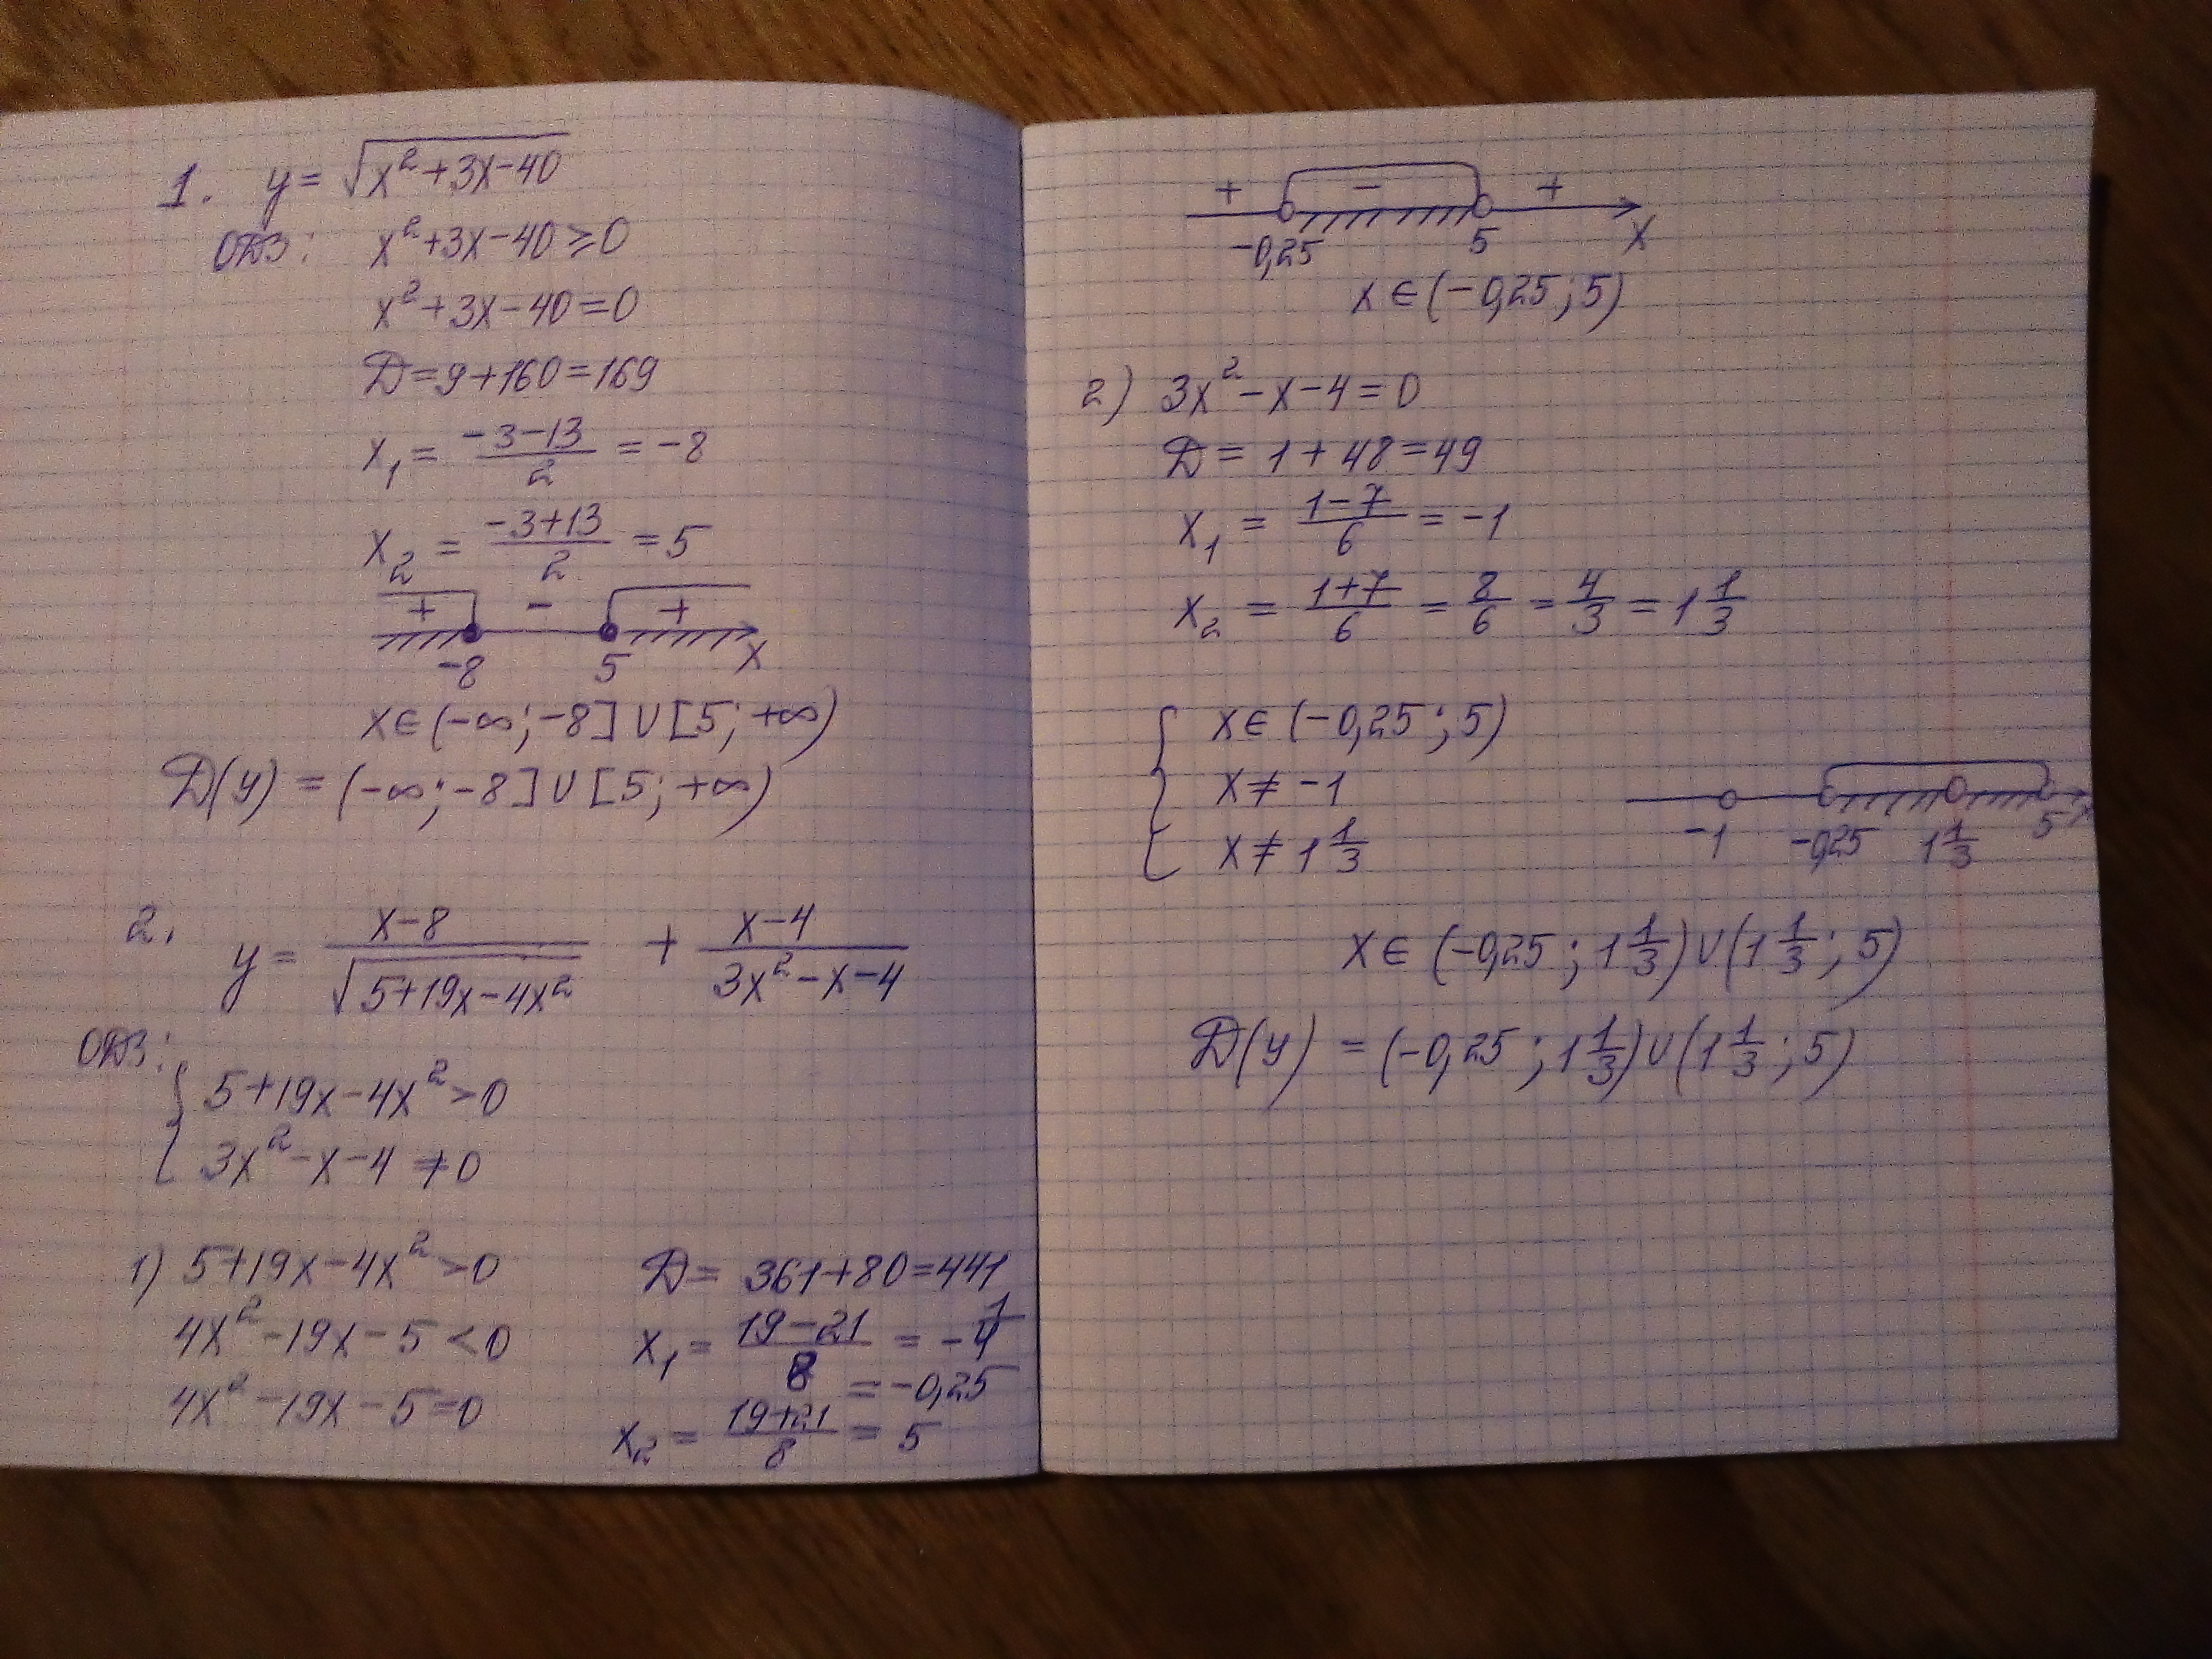 1. y = √(x² + 3x - 40)
ОДЗ: x² + 3x - 40 ≥ 0
x² + 3x - 40 = 0
D = 9 + 160 = 169
x₁ = (-3-13)/2 = -8
x₂ = (-3+13)/2 = 5
+ - +
-8 5 x
x ∈ (-∞; -8] ∪ [5; +∞)
D(y) = (-∞; -8] ∪ [5; +∞)
2. y = (x-8)/√(5+19x-4x²) + (x-4)/(3x²-x-4)
ОДЗ:
{ 5+19x-4x² > 0
3x²-x-4 ≠ 0
1) 5+19x-4x² > 0
4x²-19x-5 < 0
4x²-19x-5 = 0
D = 361+80 = 441
x₁ = (19-21)/8 = -1/4
= -0,25
x₂ = (19+21)/8 = 5
+ - +
-0,25 5 x
x ∈ (-0,25; 5)
2) 3x² - x - 4 = 0
D = 1 + 48 = 49
x₁ = (1-7)/6 = -1
x₂ = (1+7)/6 = 8/6 = 4/3 = 1 1/3
{ x ∈ (-0,25; 5)
x ≠ -1
x ≠ 1 1/3
-1 -0,25 1 1/3 5 x
x ∈ (-0,25; 1 1/3) ∪ (1 1/3; 5)
D(y) = (-0,25; 1 1/3) ∪ (1 1/3; 5)